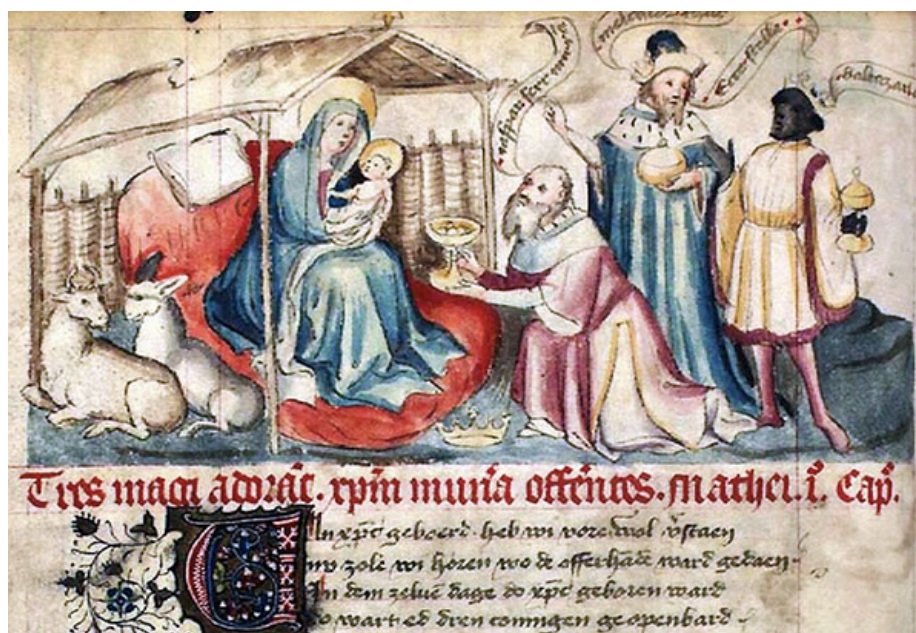 baltazar
Tres magi adorāt. xp̄m mun̄a offer̄ntes. Mathei. i͛. Cap͛.
In xp̄c geboerd heb wi vore wol v̄staen
nv zole wi horen wo de offerhāde ward gedaen
In dem zelue dage do xp̄c geboren ward
do wart ed dren coningen geopenbard